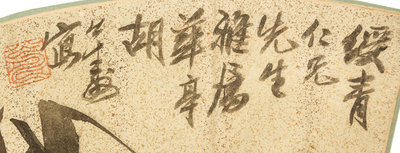 綬青
仁兄
先生
雅属
華亭
胡
寫